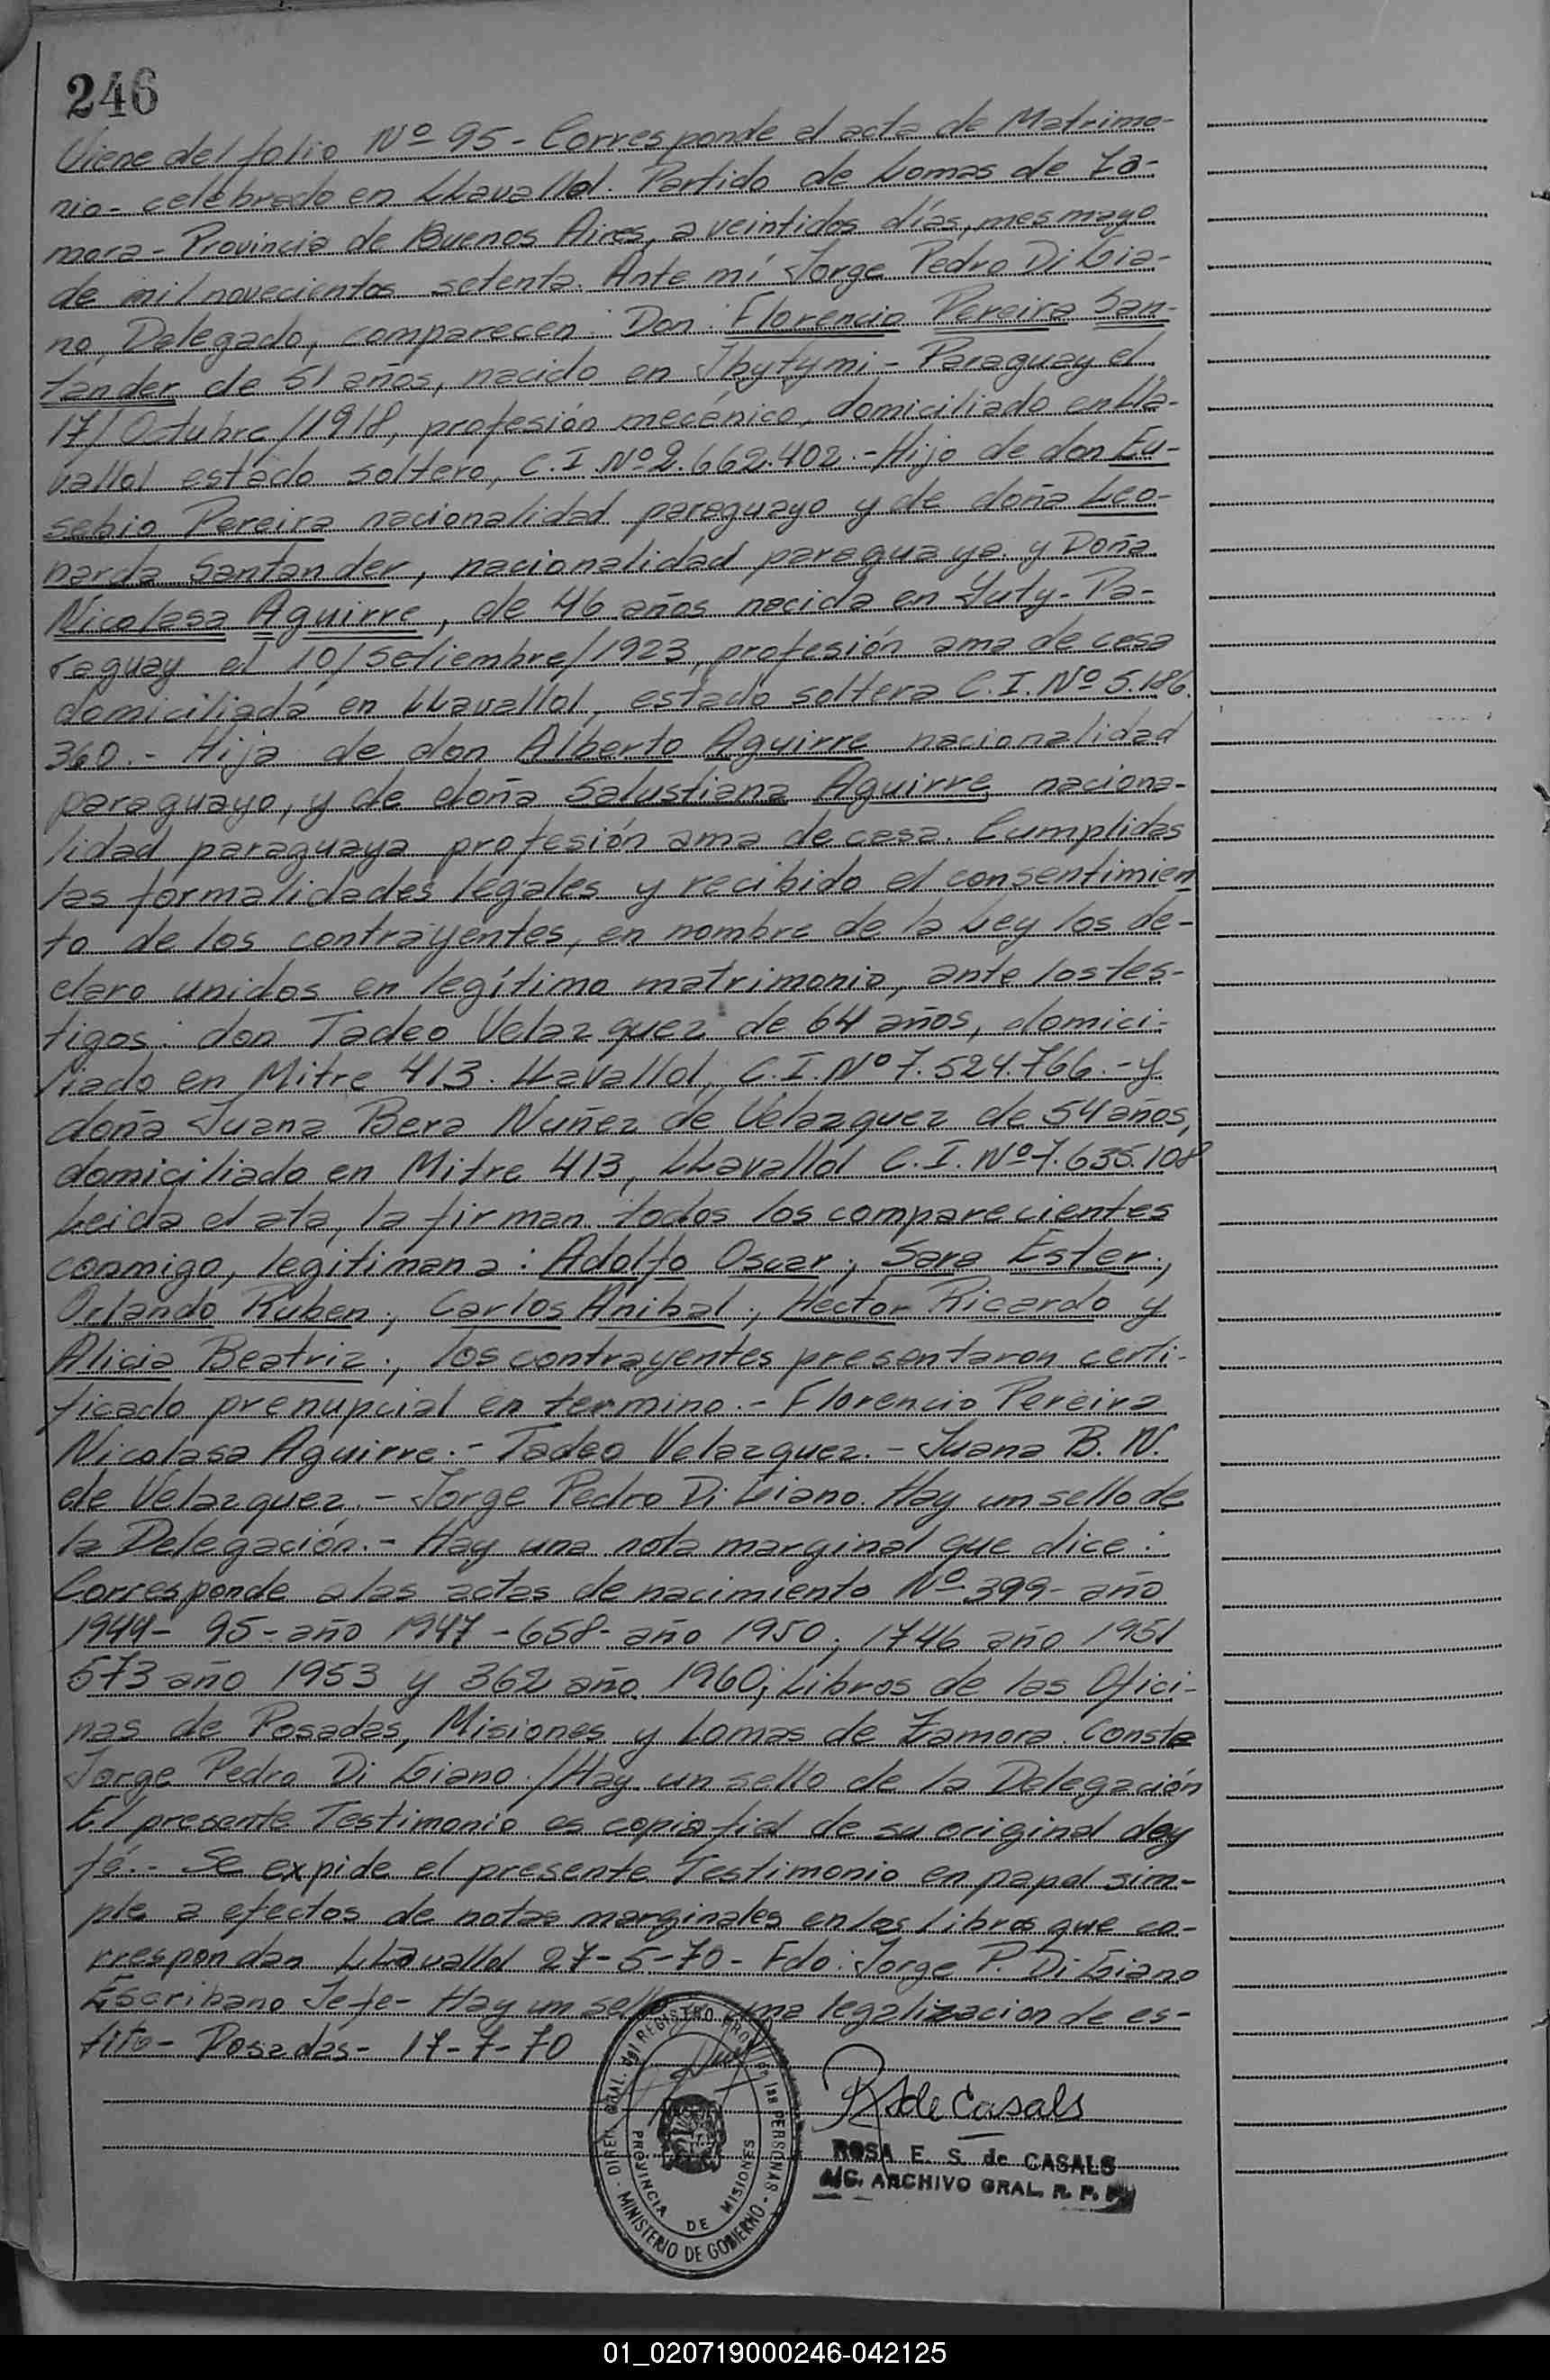 246
Viene del folio Nº 95 - Corresponde el acta de Matrimo-
nio - celebrado en LLavallol. Partido de Lomas de Za-
mora - Provincia de Buenos Aires, a veintidos días, mes mayo
de mil novecientos setenta. Ante mí Jorge Pedro Di Lia-
no, Delegado, comparecen: Don: Florencio Pereira San-
tander de 51 años, nacido en Ibytymi - Paraguay el
17/Octubre/1918, profesión mecánico, domiciliado en LLa-
vallol estado soltero, C.I. Nº 2.662.402.- Hijo de don Eu-
sebio Pereira nacionalidad paraguayo y de doña Leo-
narda Santander, nacionalidad paraguaya y Doña
Nicolasa Aguirre, de 46 años nacida en Yuty - Pa-
raguay el 10/Setiembre/1923, profesión ama de casa
domiciliada en LLavallol, estado soltera C.I. Nº 5.186.
360.- Hija de don Alberto Aguirre nacionalidad
paraguayo, y de doña Salustiana Aguirre naciona-
lidad paraguaya profesión ama de casa. Cumplidas
las formalidades legales y recibido el consentimien
to de los contrayentes, en nombre de la Ley los de-
claro unidos en legítimo matrimonio, ante los tes-
tigos: don Tadeo Velazquez de 64 años, domici-
liado en Mitre 413. LLavallol, C.I. Nº 7.524.766.- y
doña Juana Bera Nuñez de Velazquez de 54 años,
domiciliado en Mitre 413, LLavallol C.I. Nº 7.635.108
Leida el ata, la firman todos los comparecientes
conmigo, legitimana: Adolfo Oscar; Sara Ester;
Orlando Ruben; Carlos Anibal; Hector Ricardo y
Alicia Beatriz; los contrayentes presentaron certi-
ficado prenupcial en termino.- Florencio Pereira
Nicolasa Aguirre.- Tadeo Velazquez.- Juana B. N.
de Velazquez.- Jorge Pedro Di Liano. Hay un sello de
la Delegación.- Hay una nota marginal que dice:
Corresponde a las actas de nacimiento Nº 399- año
1944- 95- año 1947 - 658- año 1950; 1746 año 1951
573 año 1953 y 362 año 1960; Libros de las Ofici-
nas de Posadas, Misiones y Lomas de Zamora. Conste
Jorge Pedro Di Liano./Hay un sello de la Delegación
El presente Testimonio es copia fiel de su original doy
fé.- Se expide el presente Testimonio en papel sim-
ple a efectos de notas marginales en los libros que co-
rrespondan LLavallol 27-5-70- Fdo: Jorge P. Di Liano
Escribano Jefe- Hay un sello una legalizacion de es-
tilo- Posadas- 17-7-70
DIREC. GRAL. del REGISTRO PROV. de las PERSONAS - MINISTERIO DE GOBIERNO -
PROVINCIA DE MISIONES
RSde Casals
ROSA E. S. de CASALS
A/C. ARCHIVO GRAL. R. P. P.
01_020719000246-042125